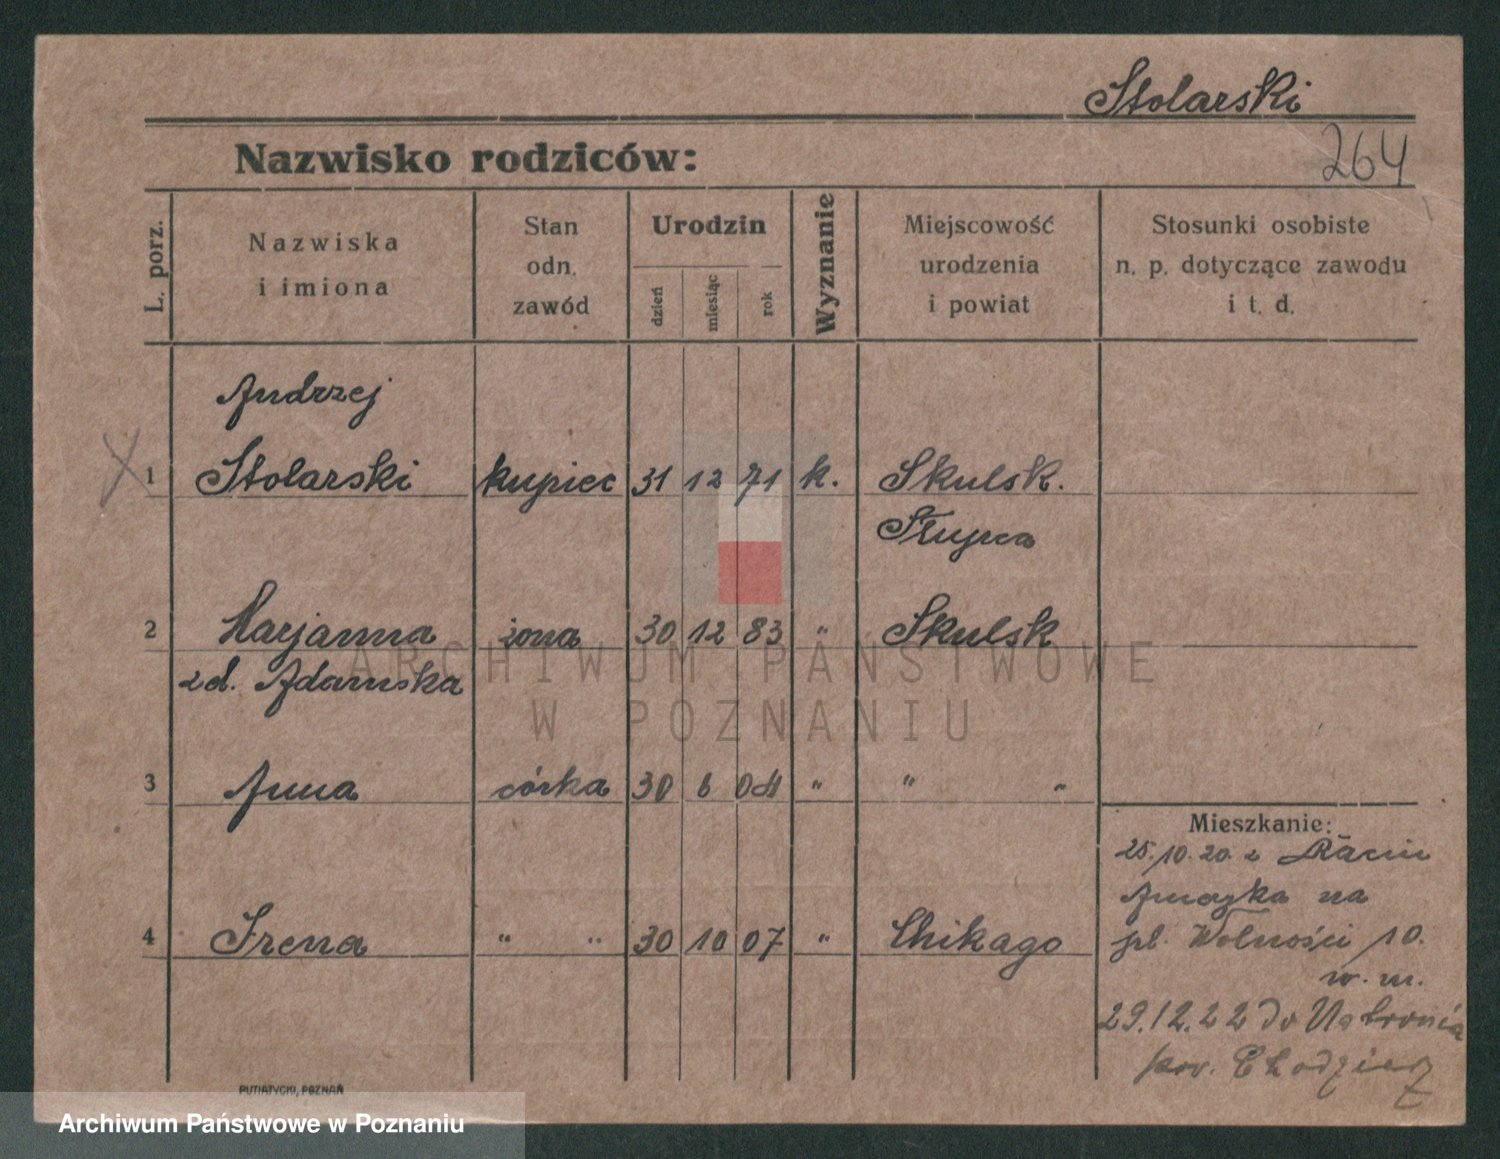 Stolarski
264
Nazwisko rodziców:
L. porz.
Nazwiska
i imiona
Stan
odn.
zawód
Urodzin
dzień
miesiąc
rok
Wyznanie
Miejscowość
urodzenia
i powiat
Stosunki osobiste
n. p. dotyczące zawodu
i t. d.
Andrzej
1 Stolarski kupiec 31 12 71 k. Skulsk.
Słupca
2 Marjanna żona 30 12 83 " Skulsk
zd. Adamska
3 Anna córka 30 6 04 " " "
4 Irena " " 30 10 07 " Chikago
Mieszkanie:
25.10.20. z
na
pl. Wolności 10.
w. m.
29.12.22 do
pow. Chodzież
PUTIATYCKI, POZNAŃ
ARCHIWUM PAŃSTWOWE
W POZNANIU
Archiwum Państwowe w Poznaniu